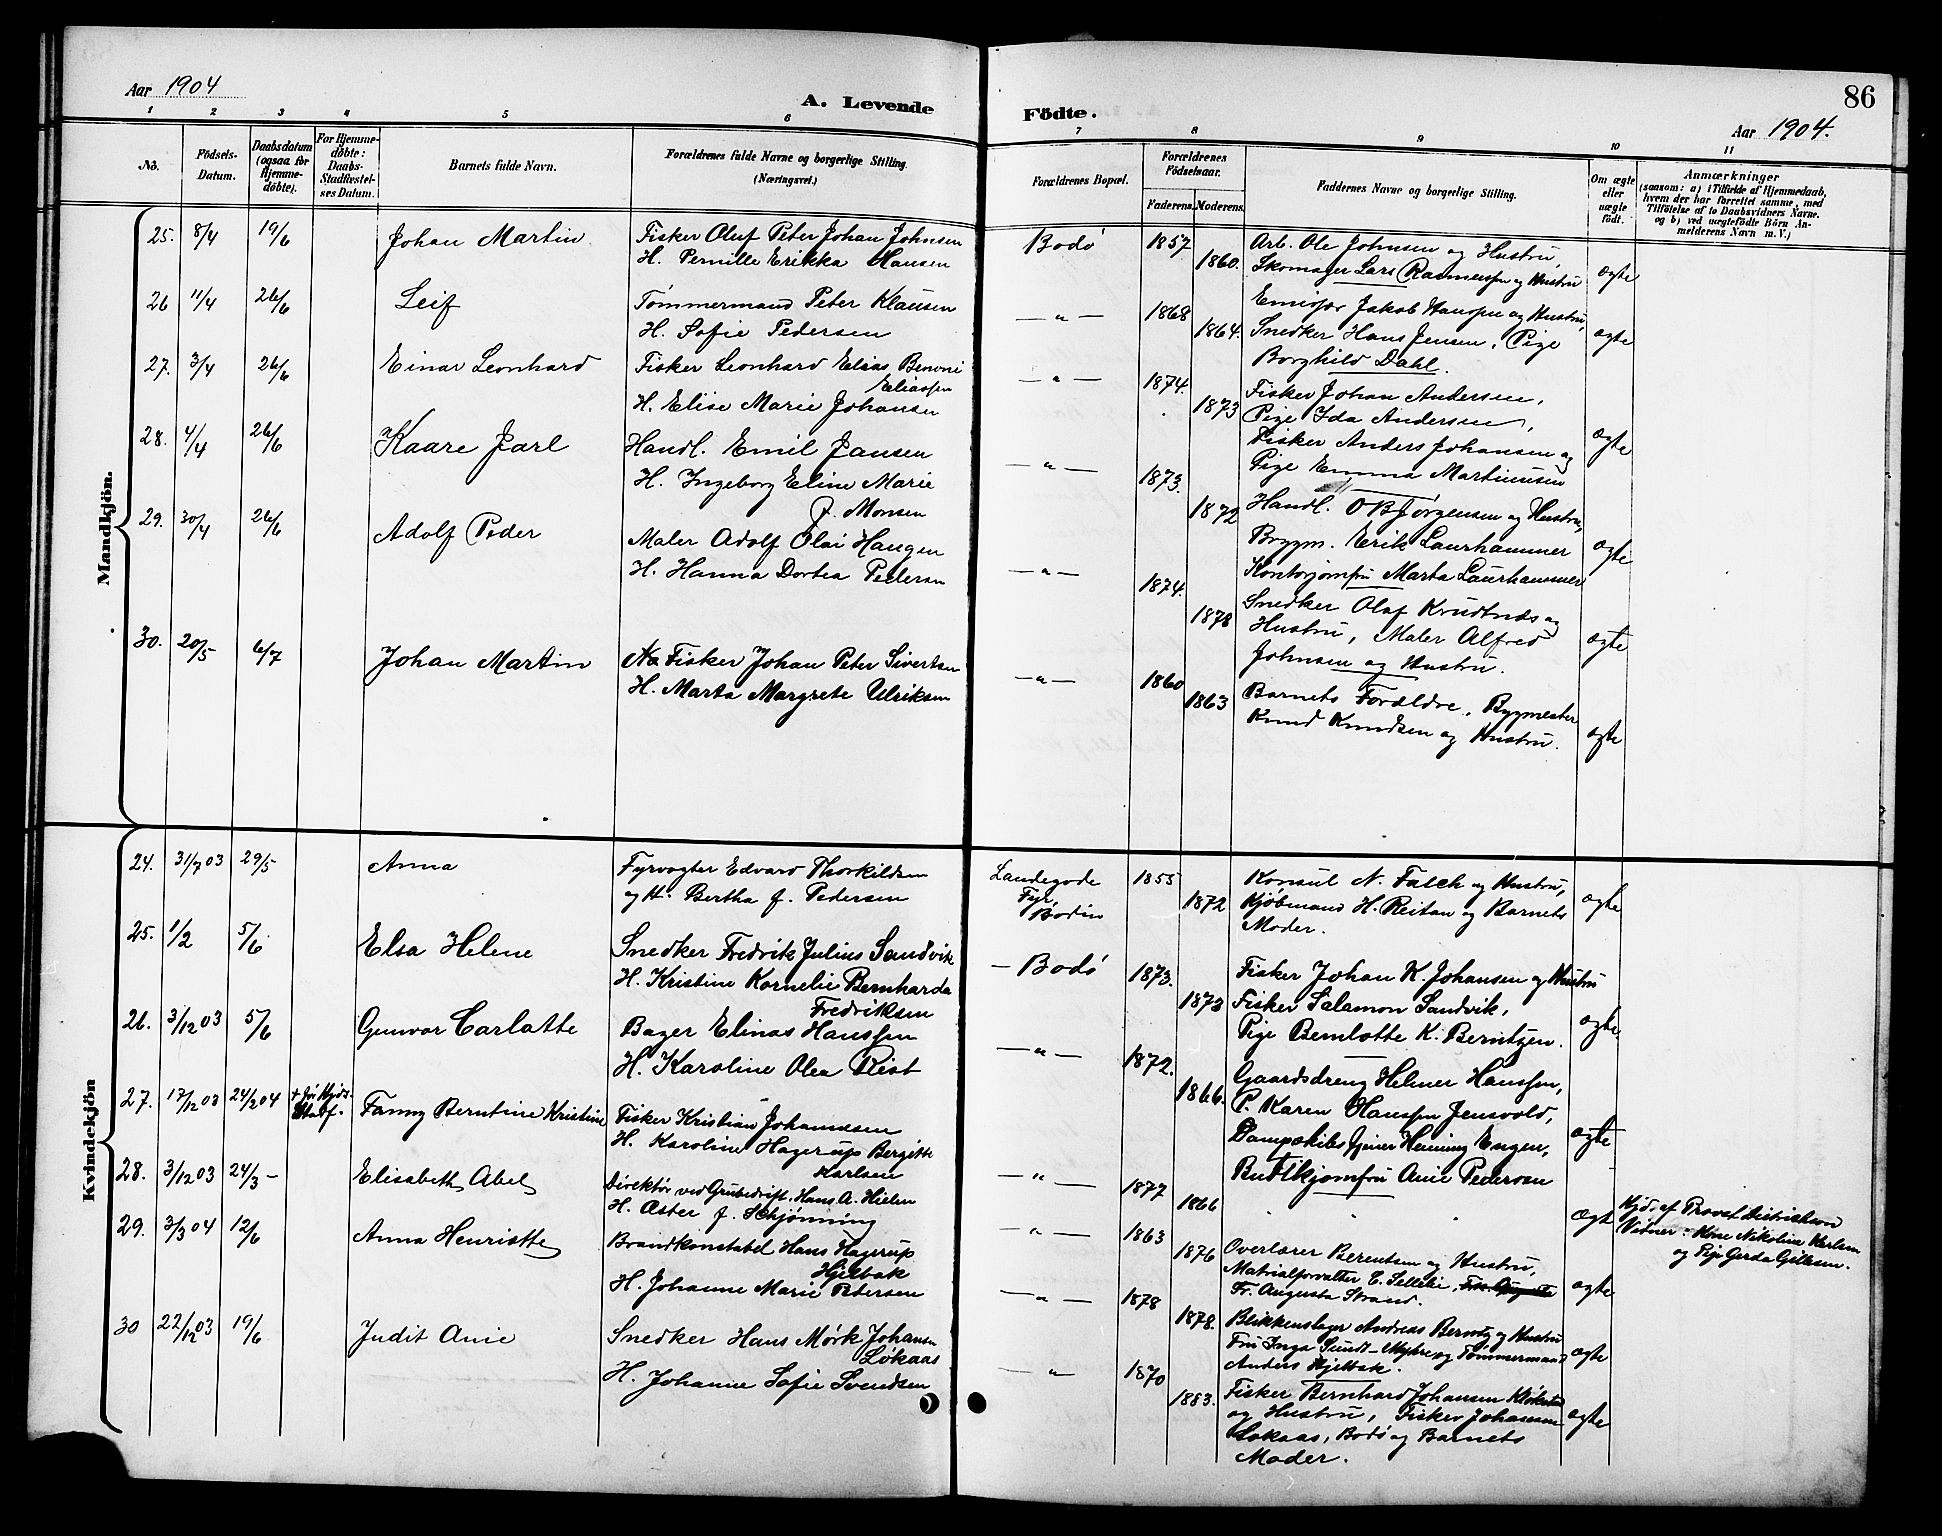 Aar 1904
A. Levende
1 2 3 4 5 6
No.
Födsels-
Datum.
Daabsdatum
(ogsaa for
Hjemme-
döbte).
For Hjemme-
döbte:
Daabs-
Stadfæstel-
ses Datum.
Barnets fulde Navn.
Forældrenes fulde Navne og borgerlige Stilling
(Næringsvei.)
Mandkjön.
25. 8/4 19/6 Johan Martin
Fisker Oluf Peter Johan Johnsen
H. Pernille Erikka Hansen
26 11/4 26/6 Leif
Tømmermand Peter Klausen
H. Sofie Pedersen
27. 3/4 26/6 Einar Leonhard
Fisker Leonhard Elias Benoni
Eliassen
H. Elise Marie Johansen
28. 4/4 26/6 Kaare Jarl
Handl. Emil Jansen
H. Ingeborg Eline Marie
f. Monsen
29. 30/4 26/6 Adolf Peder
Maler Adolf Olai Haugen
H. Hanna Dortea Pedersen
30. 20/5 6/7 Johan Martin
Fisker Johan Peter Sivertsen
H. Marta Margrete Ulriksen
Kvindekjön
24. 31/7 03 29/5 Anna
Fyrvogter Edvard Thorkildsen
og H. Bertha f. Pedersen
25. 1/2 5/6 Elsa Helene
Snedker Fredrik Julius Sandvik
H. Kristine Kornelie Bernharda
Fredriksen
26. 3/12 03 5/6 Gunvor Carlotte
Bager Elinas Hanssen
H. Karoline Olea Rist
27. 17/12 03 24/2 04 Fanny Berntine Kristine
Fisker Kristian Johannesen
H. Karoline Hagerup Bergitte
Karlsen
28. 3/12 03 24/3 - Elisabeth Abel
Direktör ved Grubedrift. Hans A. Hielen
H. Ester f. Schjønning
29. 3/3 04 12/6 Anna Henriette
Brandkonstabel Hans Hagerup
Hjelbak
H. Johanne Marie Petersen
30 22/12 03 19/6 Judit Anie
Snedker Hans Mørk Johansen
Løkaas
H. Johanne Sofie Svendsen
Födte.
86
Aar 1904.
7 8 9 10 11
Forældrenes Bopæl.
Forældrenes
Födselsaar.
Faderens. Moderens.
Faddernes Navne og borgerlige Stilling.
Om ægte
eller
uægte
födt.
Anmærkninger
(saasom: a) i Tilfælde af Hjemmedaab,
hvem der har forrettet samme, med
Tilföielse af to Daabsvidners Navne,
og b) ved uægtefödte Börn An-
melderens Navn m. V.)
Bodø 1857 1860.
Arb. Ole Johnsen og Hustru,
Skomager Lars Rasmussen og Hustru
ægte
— " — 1868 1864.
Jakob Hansen og Hustru,
Snedker Hans Jensen, Pige
Borghild Dahl.
ægte
— " — 1874. 1873
Fisker Johan Andersen,
Pige Ida Andersen,
Fisker Anders Johansen og
Pige Emma Martinusen
ægte
— " — 1873. 1872
Handl. O B Jörgensen og Hustru,
Byggm. Erik Laurhammer
Kontorjomfru Marta Laurhammer
ægte
— " — 1874. 1878
Snedker Olaf Krudtnæs og
Hustru, Maler Alfred
Johnsen og Hustru.
ægte
— " — 1860 1863
Barnets Forældre, Bygmester
Knud Knudsen og Hustru.
ægte
Landegode
Fyr,
Bodin
1855 1872
Konsul N. Falch og Hustru,
Kjöbmand H. Reitan og Barnets
Moder.
ægte
— Bodø 1873. 1873
Fisker Johan K. Johansen og Hustru
Fisker Salamon Sandvik,
Pige Bernlotte K. Berntzen.
ægte
— " — 1872. 1866.
Gaardsdreng Helmer Hanssen,
P. Karen Hanssen Jensvold,
Henning Engen,
Butikjomfru Anie Pedersen
ægte
— " — 1877 1866
ægte
Kjd. af Provst Distriehsen
Vidner: Kone Nikolina Karlsen
og Pige Gerda Gillesen.
— " — 1863 1876
Overlærer Berentsen og Hustru,
Matrialforvalter E. Selleber,
Fr. Augusta Strand.
ægte
— " — 1878 1878.
Blikkenslager Andreas Bernög og Hustru
Fru Inga Sundt-Myhre og Tømmermand
Anders Hjelbak.
ægte
" 1870 1883.
Fisker Bernhard Johansen
og Hustru, Fisker Johannes
Løkaas, Bodø og Barnets
Moder.
ægte